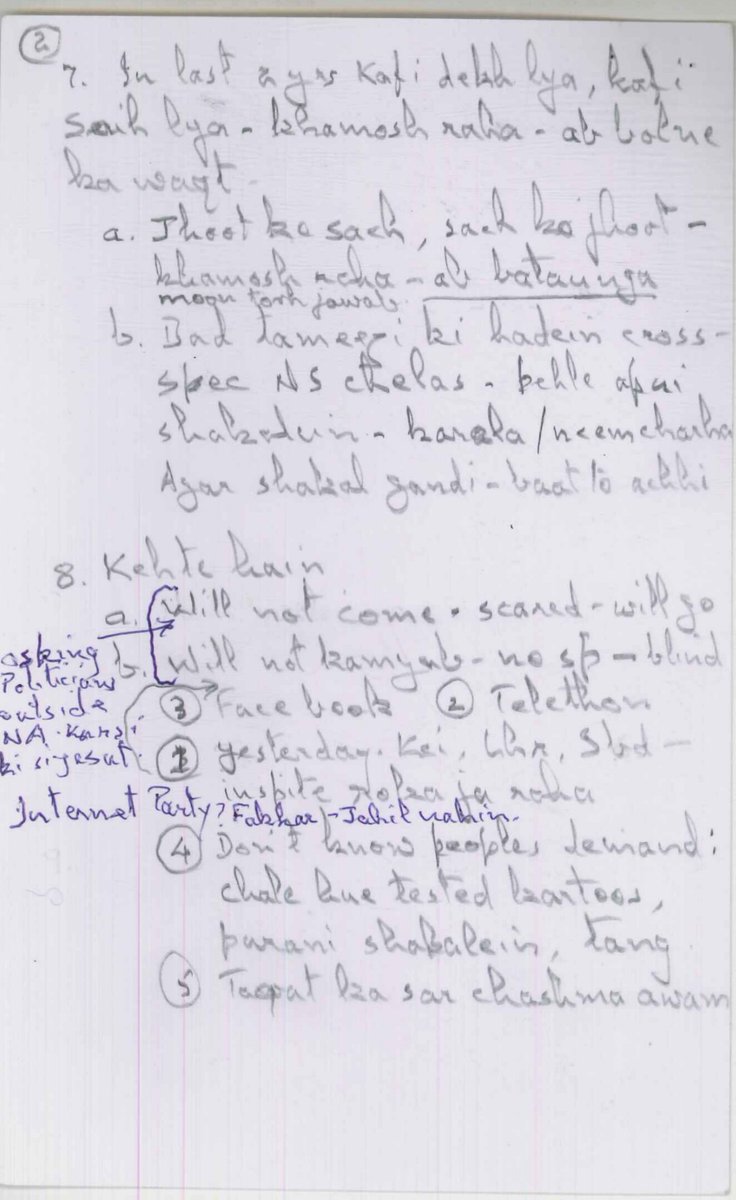 2
7. In last 2 yrs Kafi dekh lya, kafi
seih lya - khamosh raha - ab bolne
ka waqt -
a. Jhoot ko sach, sach ko jhoot -
khamosh raha - ab bataunga
moqu torh jawab
b. Bad tameezi ki hadein cross -
spec NS chelas - pehle apni
shakedein - karela / neem charha
Agar shakal gandi - baat to achhi
8. Kehte hain
a. Will not come - scared - will go
b. Will not kamyab - no sp - blind
asking
Politicians
outside
NA. Karsi
ki siyasat
3 Face book 2 Telethon
1 yesterday. Kci, Lhr, Sbd -
inspite roka ja raha
Internet Party? Fakhar - Jahil nahin.
4 Don't know peoples demand:
chale hue tested kartoos,
purani shakalein, tang
5 Taqat ka sar chashma awam